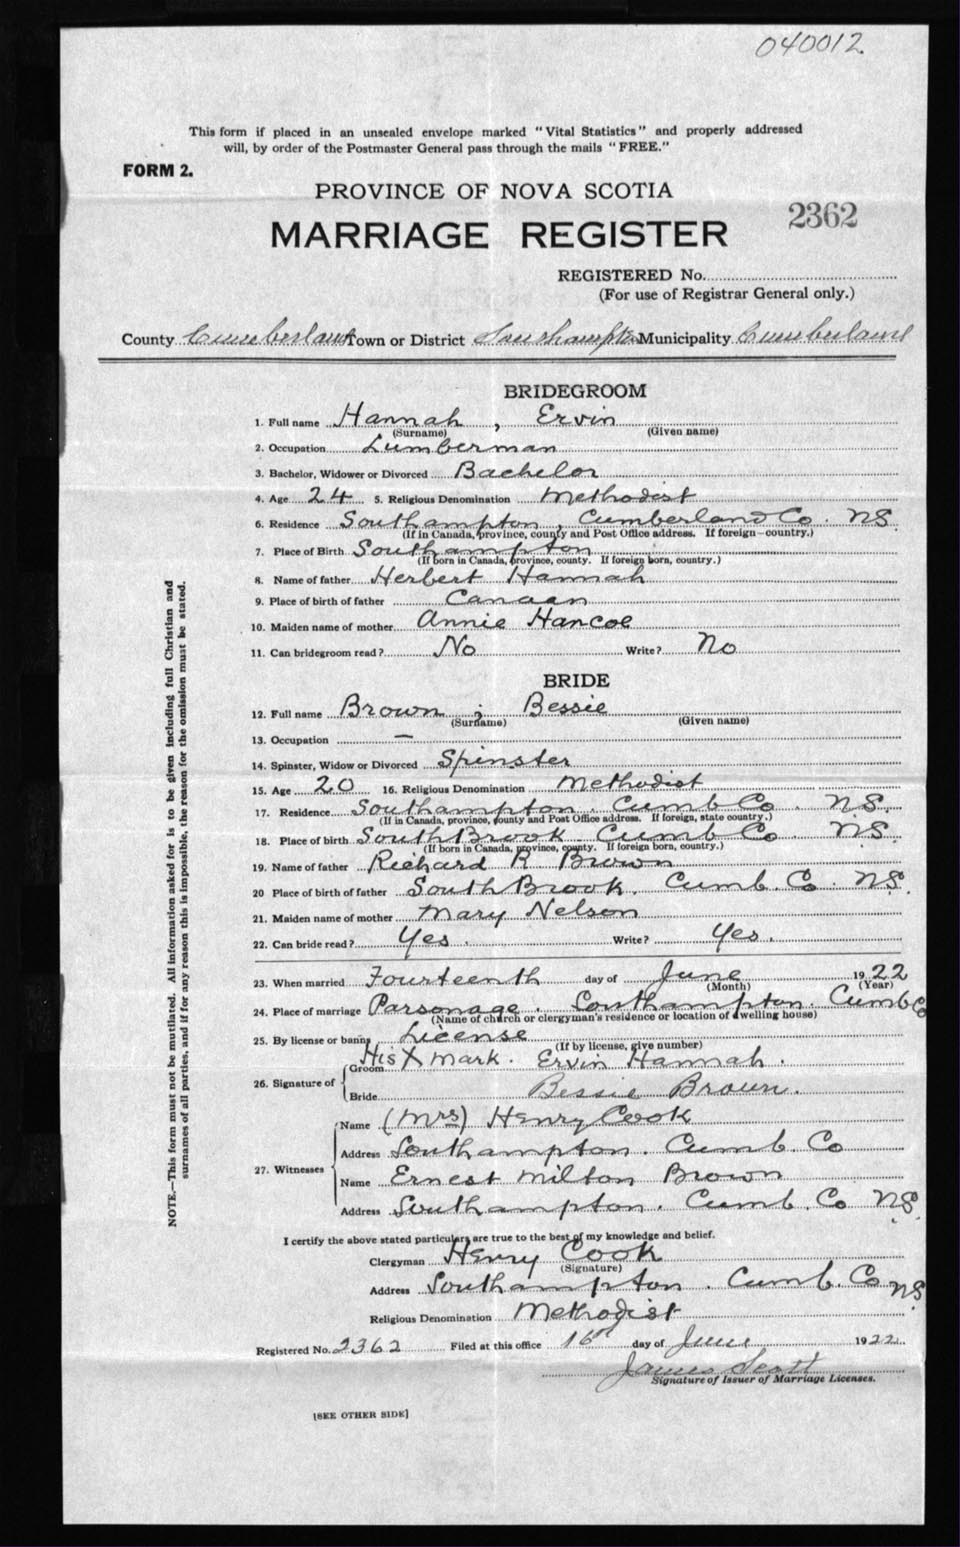 040012.
This form if placed in an unsealed envelope marked "Vital Statistics" and properly addressed
will, by order of the Postmaster General pass through the mails "FREE."
FORM 2.
PROVINCE OF NOVA SCOTIA
2362
MARRIAGE REGISTER
REGISTERED No.
(For use of Registrar General only.)
County Cumberland Town or District Southampton Municipality Cumberland
BRIDEGROOM
1. Full name Hannah, Ervin
(Surname) (Given name)
2. Occupation Lumberman
3. Bachelor, Widower or Divorced Bachelor
4. Age 24 5. Religious Denomination Methodist
6. Residence Southampton, Cumberland Co. NS.
(If in Canada, province, county and Post Office address. If foreign—country.)
7. Place of Birth Southampton
(If born in Canada, province, county. If foreign born, country.)
8. Name of father Herbert Hannah
9. Place of birth of father Canaan
10. Maiden name of mother Annie Hancoe
11. Can bridegroom read? No Write? No
BRIDE
12. Full name Brown ; Bessie
(Surname) (Given name)
13. Occupation —
14. Spinster, Widow or Divorced Spinster
15. Age 20 16. Religious Denomination Methodist
17. Residence Southampton. Cumb Co. N.S.
(If in Canada, province, county and Post Office address. If foreign, state country.)
18. Place of birth South Brook Cumb Co. N.S.
(If born in Canada, province, county. If foreign born, country.)
19. Name of father Richard R Brown
20 Place of birth of father South Brook. Cumb. Co. N.S.
21. Maiden name of mother Mary Nelson
22. Can bride read? Yes. Write? Yes.
23. When married Fourteenth day of June 1922
(Month) (Year)
24. Place of marriage Parsonage. Southampton. Cumb Co
(Name of church or clergyman's residence or location of dwelling house)
25. By license or banns License
(If by license, give number)
26. Signature of Groom His X mark. Ervin Hannah.
Bride Bessie Brown.
27. Witnesses Name (Mrs) Henry Cook
Address Southampton. Cumb. Co
Name Ernest Milton Brown
Address Southampton. Cumb. Co NS.
I certify the above stated particulars are true to the best of my knowledge and belief.
Clergyman Henry Cook
(Signature)
Address Southampton. Cumb. Co NS.
Religious Denomination Methodist
Registered No. 2362 Filed at this office 16th day of June 1922
James Scott
Signature of Issuer of Marriage Licenses.
[SEE OTHER SIDE]
NOTE.—This form must not be mutilated. All information asked for is to be given including full Christian and
surnames of all parties, and if for any reason this is impossible, the reason for the omission must be stated.